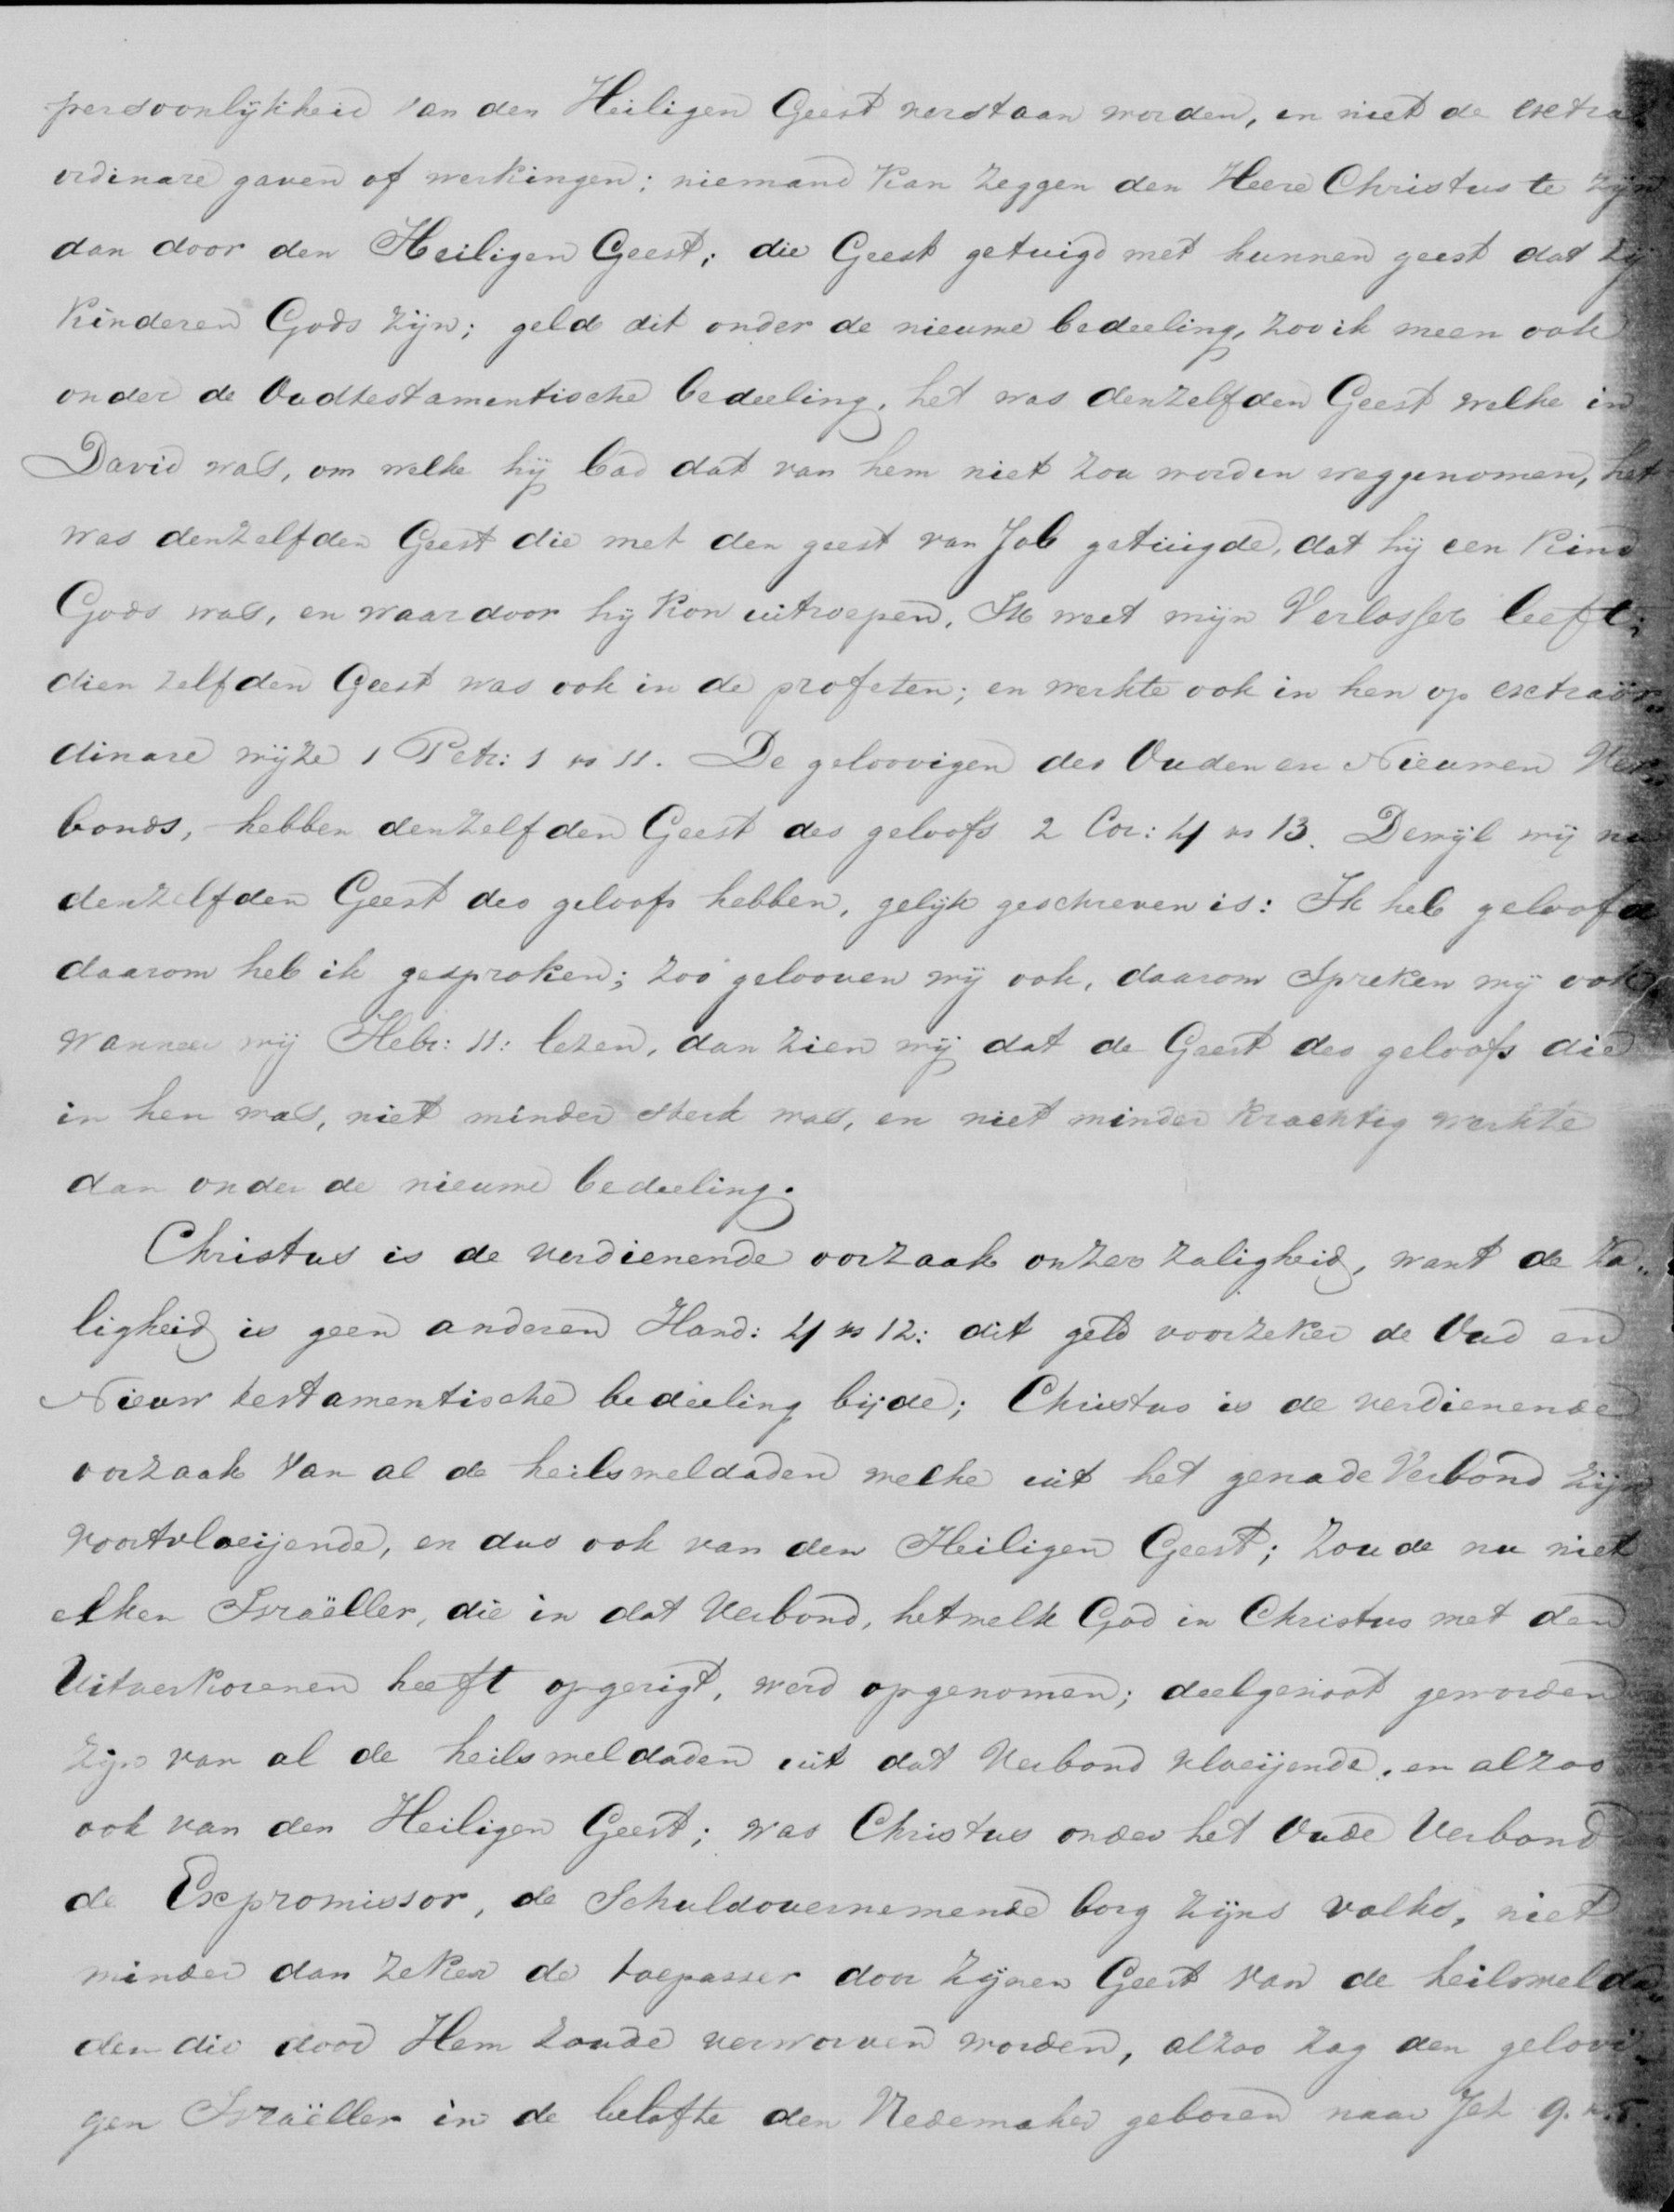 persoonlijkheid van den Heiligen Geest verstaan worden, en niet de extra
ordinare gaven of werkingen; niemand kan zeggen den Heere Christus te zijn
dan door den Heiligen Geest; die Geest getuigd met hunnen geest dat zij
kinderen Gods zijn; geld dit onder de nieuwe bedeeling, zoo ik meen ook
onder de Oudtestamentische bedeeling, het was denzelfden Geest welke in
David was, om welke hij bad dat van hem niet zou worden weggenomen, het
was denzelfden Geest die met den geest van Job getuigde, dat hij een kind
Gods was, en waardoor hij kon uitroepen, Ik weet mijn Verlosser leeft;
dien zelfden Geest was ook in de profeten; en werkte ook in hen op extraör„
dinare wijze 1 Petr: 1 vs 11. De geloovigen des Ouden en Nieuwen Ver„
bonds, hebben denzelfden Geest des geloofs 2 Cor: 4 vs 13. Dewijl wij nu
denzelfden Geest des geloofs hebben, gelijk geschreven is: Ik heb geloofd
daarom heb ik gesproken; zoo gelooven wij ook, daarom spreken wij ook,
wanneer wij Hebr: 11: lezen, dan zien wij dat de Geest des geloofs die
in hen was, niet minder sterk was, en niet minder krachtig werkte
dan onder de nieuwe bedeeling.
Christus is de verdienende oorzaak onzer zaligheid, want de za„
ligheid is geen anderen Hand: 4 vs 12: dit geld voorzeker de Oud en
Nieuw testamentische bedeeling bijde; Christus is de verdienende
oorzaak van al de heilsweldaden welke uit het genade Verbond zijn
voortvloeijende, en dus ook van den Heiligen Geest; zoude nu niet
elken Israëller, die in dat Verbond, hetwelk God in Christus met den
Uitverkorenen heeft opgerigt, werd opgenomen; deelgenoot geworden
zijn van al de heilsweldaden uit dat Verbond vloeijende, en alzoo
ook van den Heiligen Geest; was Christus onder het Oude Verbond
de Expromissor, de Schuldovernemende borg zijns volks, niet
minder dan zeker de toepasser door zijnen Geest van de heilswelda„
den die door Hem zoude verworven worden, alzoo zag den geloovi„
gen Israëller in de belofte den Vredemaker geboren naar Jes 9. vs 5.